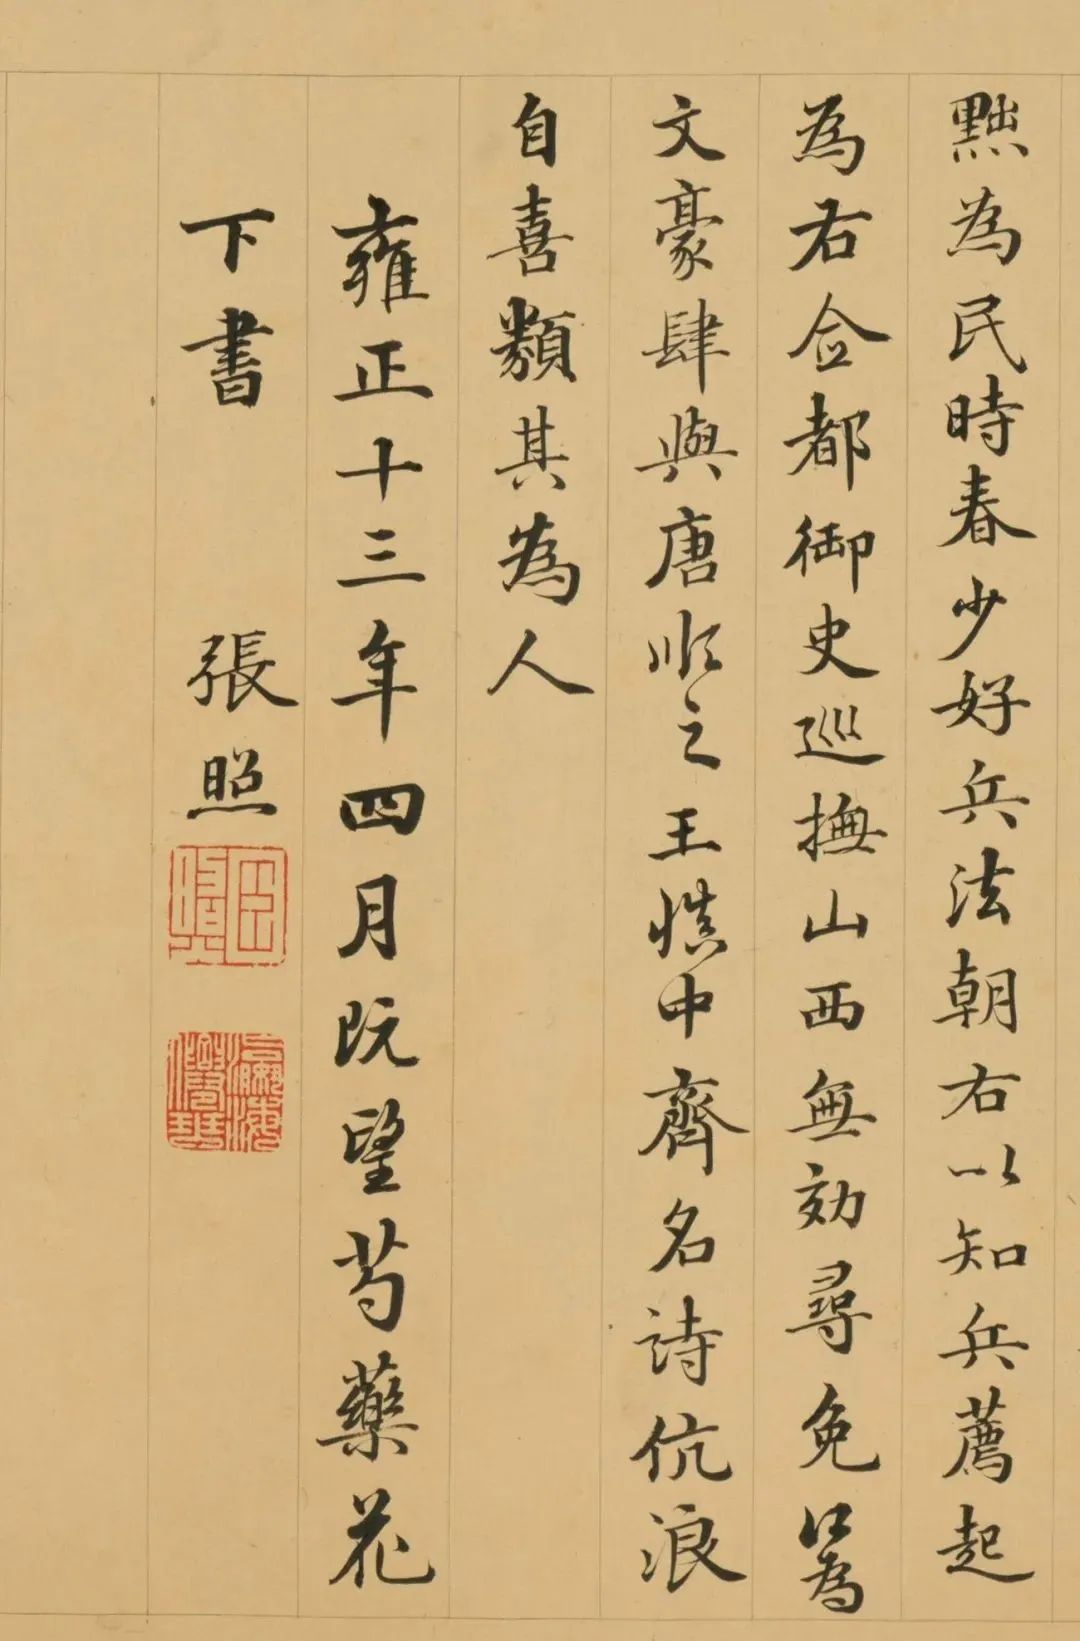 黜為民時春少好兵法朝右以知兵薦起
為右僉都御史巡撫山西無効尋免為
文豪肆與唐順之王慎中齊名詩伉浪
自喜類其為人
雍正十三年四月既望芍藥花
下書 張照
臣照